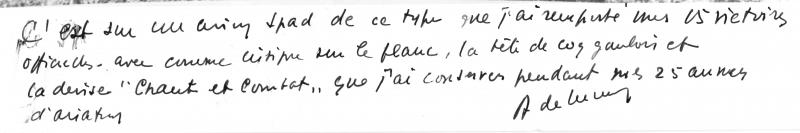 C'est sur un avion Spad de ce type que j'ai remporté mes 15 victoires
officielles - avec comme insigne sur le flanc, la tête de coq gaulois et
la devise "Chante et Combat" que j'ai conservés pendant mes 25 années
d'aviation
A de